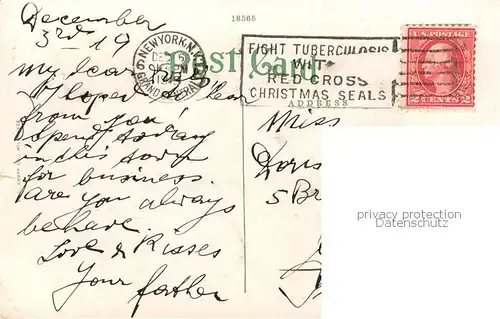 18565
December
3rd 19
NEW YORK, N.Y.
GRAND CENTRAL
Post Card
FIGHT TUBERCULOSIS
WITH
RED CROSS
CHRISTMAS SEALS
U.S. POSTAGE
2 CENTS 2
ADDRESS
My dear
I hope hear
from you
I spend today
in this town
for business.
Are you always
behave.
Love & Kisses
Your father
Miss
Doris
5 Br
privacy protection
Datenschutz